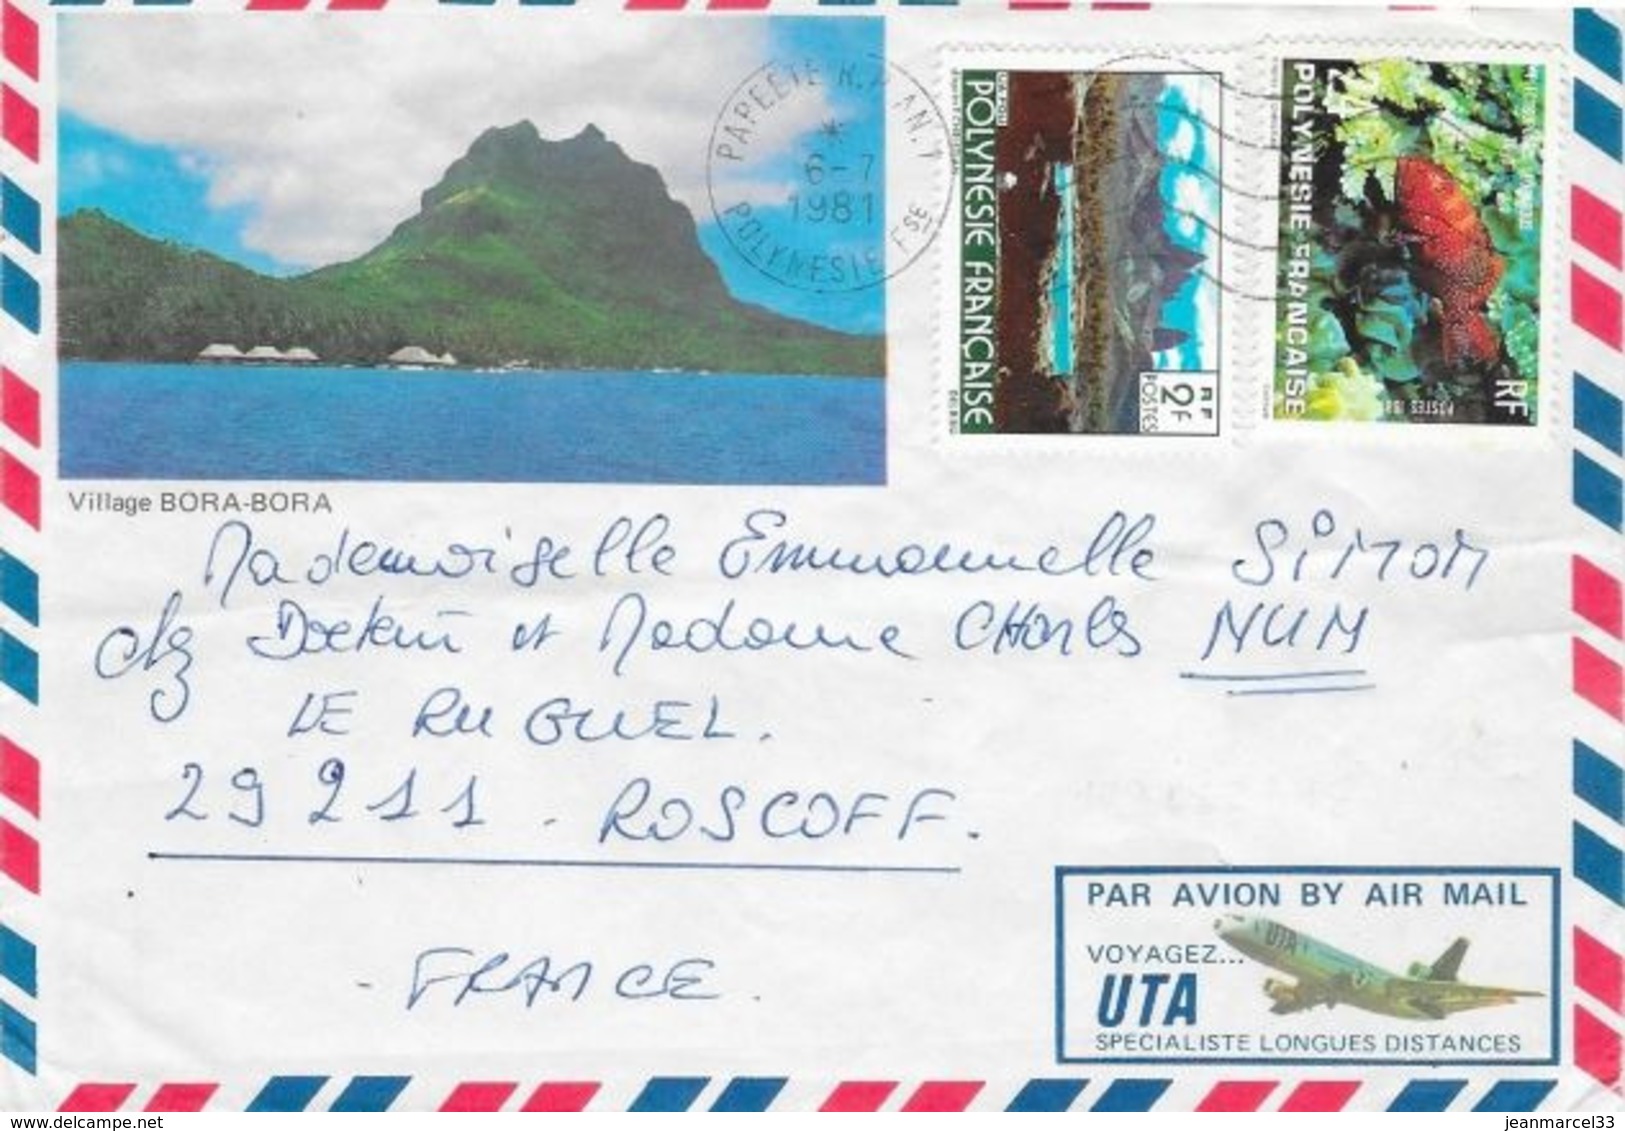 PAPEETE R.P. AN.1
*
6-7
1981
POLYNESIE Fse
POLYNESIE FRANCAISE
RF
2F
POSTES
POLYNESIE FRANCAISE
RF
POSTES 1981
Village BORA-BORA
Mademoiselle Emmanuelle SiMON
chz Docteur et Madame CHARles NUM
LE RUGUEL.
29 211 - ROSCOFF.
- FRANCE.
PAR AVION BY AIR MAIL
VOYAGEZ...
UTA
UTA
SPECIALISTE LONGUES DISTANCES
www.delcampe.net
jeanmarcel33